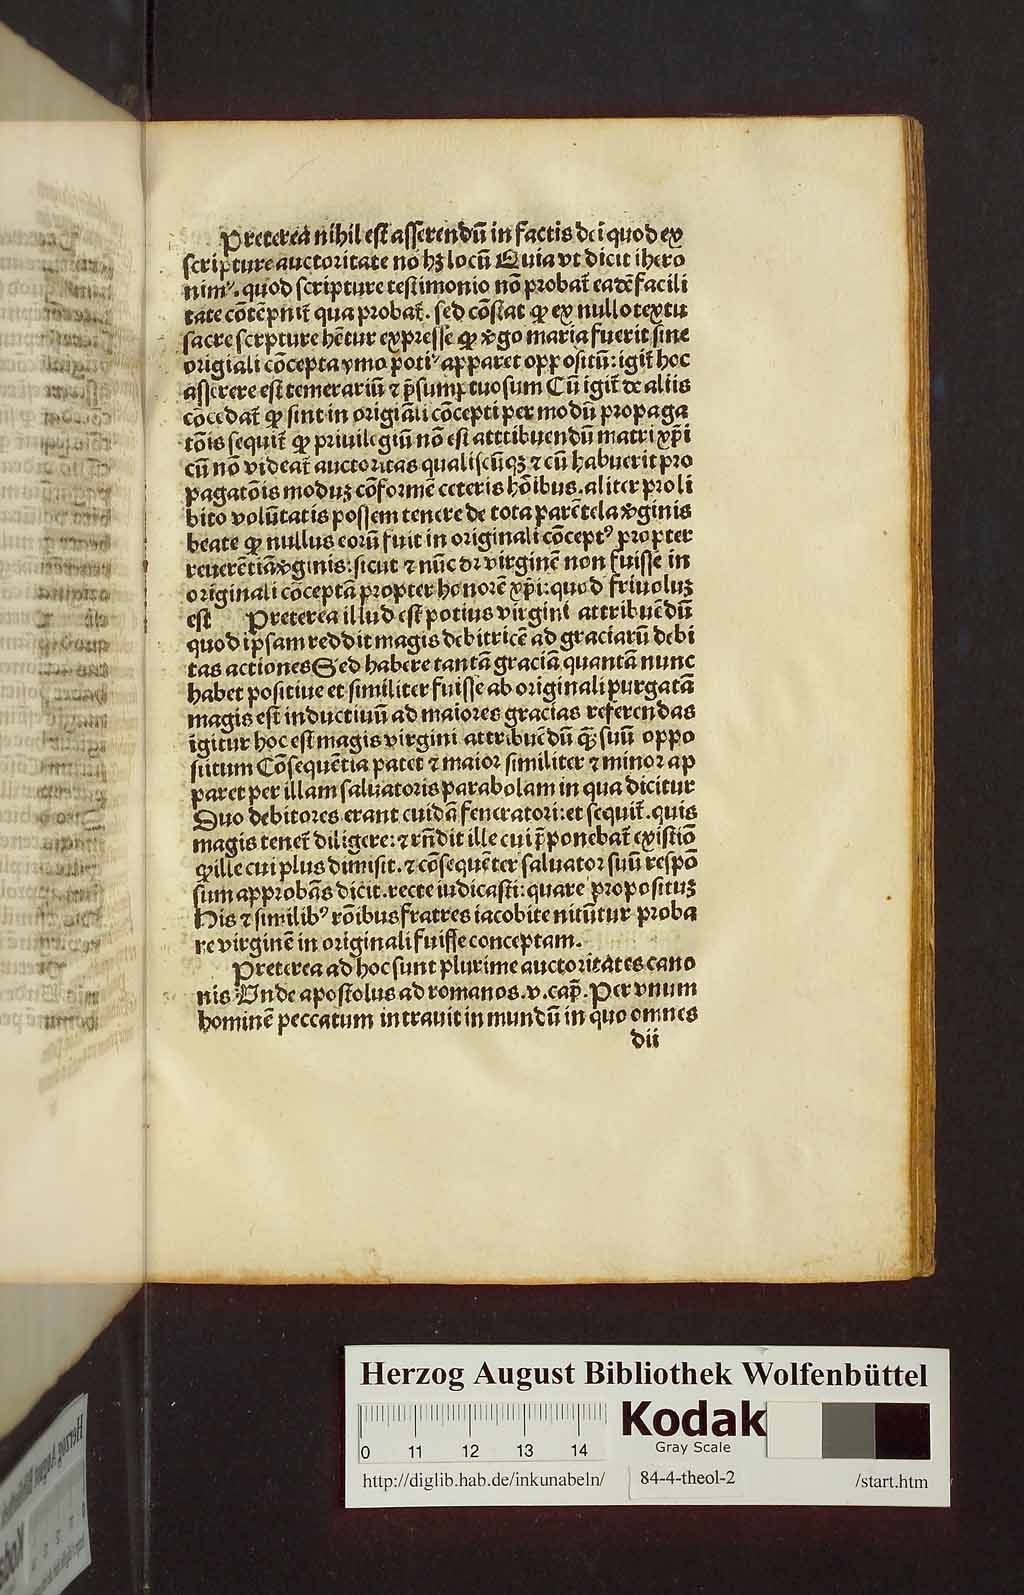 Preterea nihil est asserendū in factis dei quod ex
scripture auctoritate nō hꝫ locū Quia vt dicit ihero
nimꝰ. quod scripture testimonio nō probat̄ eadē facili
tate cōtēpnit̄ qua probat̄. sed cōstat ꝙ ex nullo textu
sacre scrpture hētur expresse ꝙ v̄go maria fuerit sine
origiali cōcepta ymo potiꝰ apparet oppositū: igit̄ hoc
asserere est temerariū ⁊ p̄sumptuosum Cū igit̄ de aliis
cōcedat̄ ꝙ sint in origiāli cōcepti per modū propaga
tōis sequit̄ ꝙ priuilegiū nō est atttibuendū matri xp̄i
cū nō videat̄ auctoritas qualiscūqꝫ ⁊ cū habuerit pro
pagatōis moduꝫ cōformē ceteris hōibus. aliter pro li
bito volūtatis possem tenere de tota parētela v̄ginis
beate ꝙ nullus eorū fuit in originali cōceptꝰ propter
reuerētiā v̄ginis: sicut ⁊ nūc dr̄ virginē non fuisse in
originali cōceptā propter honorē xp̄i: quod friuoluꝫ
est Preterea illud est potius virgini attribuēdū
quod ipsam reddit magis debitricē ad graciarū debi
tas actiones Sed habere tantā graciā quantā nunc
habet positiue et similiter fuisse ab originali purgatā
magis est inductiuū ad maiores gracias referendas
igitur hoc est magis virgini attribuēdū q̄ꝫ suū oppo
situm Cōsequētia patet ⁊ maior similiter ⁊ minor ap
paret per illam saluatoris parabolam in qua dicitur
Duo debitores erant cuidā feneratori: et sequit̄. quis
magis tenet̄ diligere: ⁊ rn̄dit ille cui p̄ponebat̄ existiō
ꝙ ille cui plus dimisit. ⁊ cōsequēter saluator suū respō
sum approbās dicit. recte iudicasti: quare propositꝫ
His ⁊ similibꝰ rōibus fratres iacobite nitūtur proba
re virginē in originali fuisse conceptam.
Preterea ad hoc sunt plurime auctoritates cano
nis Unde apostolus ad romanos. v. cap̄. Per vnum
hominē peccatum intrauit in mundū in quo omnes
dii
Herzog August Bibliothek Wolfenbüttel
0 11 12 13 14
Kodak
Gray Scale
http://diglib.hab.de/inkunabeln/ 84-4-theol-2 /start.htm